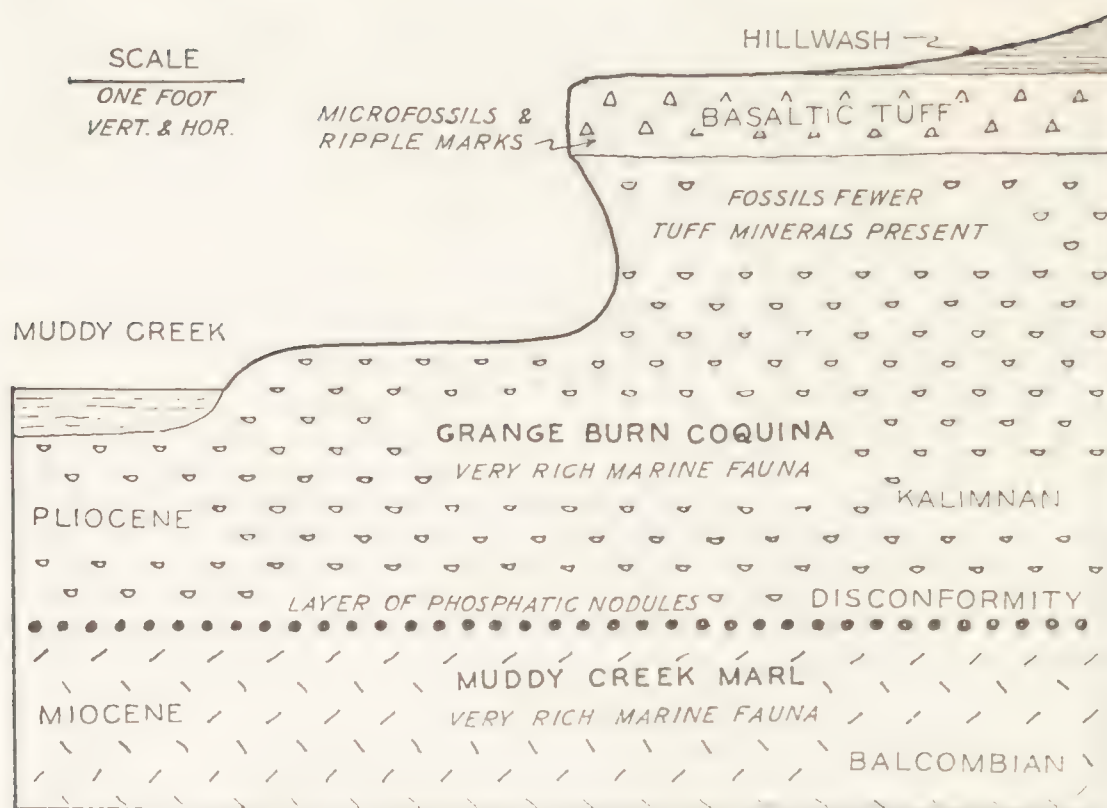 SCALE
ONE FOOT
VERT. & HOR.
HILLWASH
MICROFOSSILS &
RIPPLE MARKS
BASALTIC TUFF
FOSSILS FEWER
TUFF MINERALS PRESENT
MUDDY CREEK
GRANGE BURN COQUINA
VERY RICH MARINE FAUNA
PLIOCENE
KALIMNAN
LAYER OF PHOSPHATIC NODULES
DISCONFORMITY
MUDDY CREEK MARL
MIOCENE
VERY RICH MARINE FAUNA
BALCOMBIAN